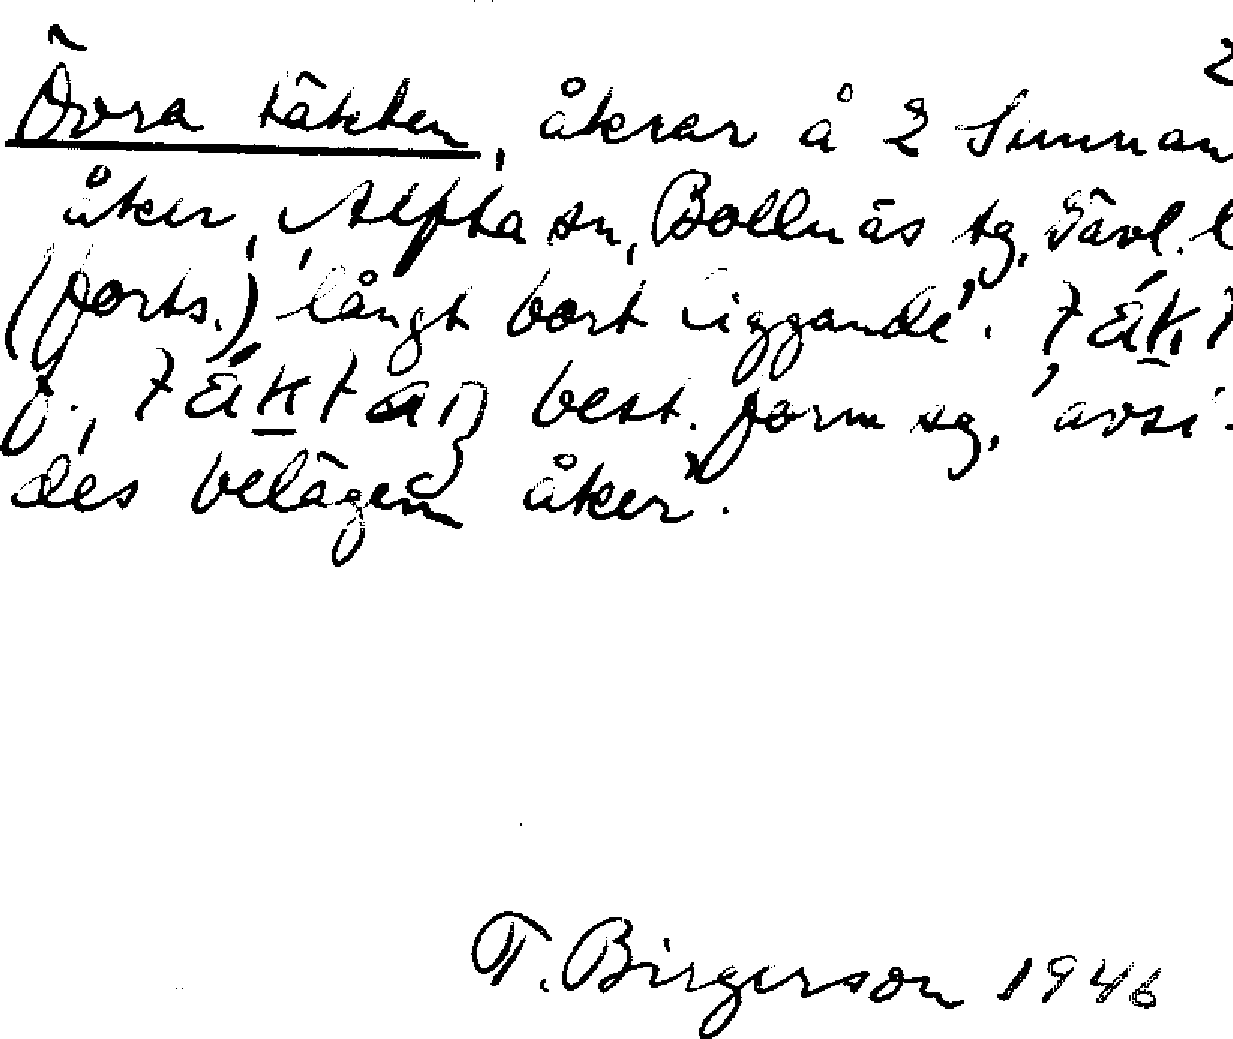 2
Övra täkten, åkrar å 2 Sunnan
åker, Alfta sn, Bollnäs tg, Gävl. l
(forts.) långt bort liggande'. táḵt
f., táḵtaŋ best. form sg, 'avsi-
des belägen åker'.
T. Birgerson 1946